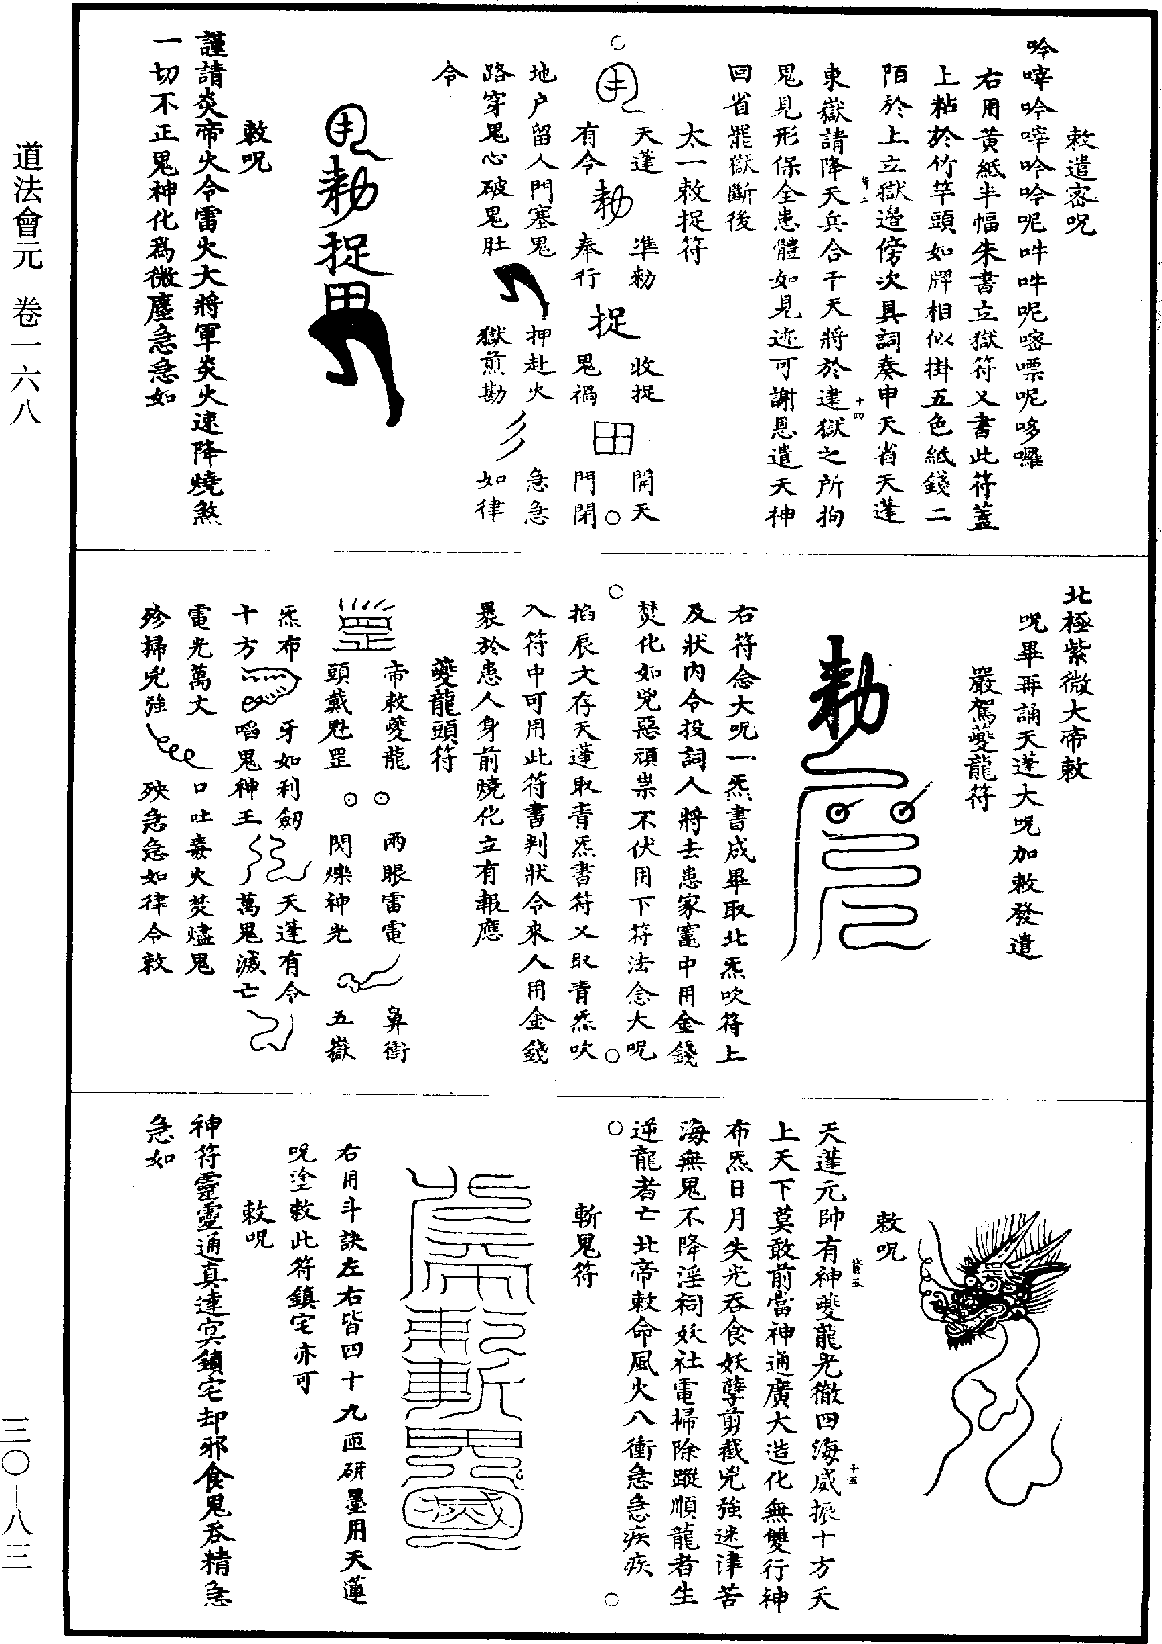 道法會元　卷一六八
三〇—八三
敕遣密呪
吟啐吟啐吟吟呢吽吽呢嘧嘌呢哆囉
右用黃紙半幅朱書立獄符又書此符蓋
上粘於竹竿頭如牌相似掛五色紙錢二
陌於上立獄邉傍次具詞奏申天省天蓬
東嶽請降天兵合干天將於逮獄之所拘
鬼見形保全患體如見迹可謝恩遣天神
回省罷獄斷後
太一敕捉符
天蓬　準勑　收捉　開天
有令　奉行　鬼禍　門閉
勑　捉
地户留人門塞鬼　押赴火　急急
路穿鬼心破鬼肚　獄煎勘　如律
令
勑捉
敕呪
謹請炎帝火令雷火大將軍炎火速降燒煞
一切不正鬼神化爲微塵急急如
北極紫微大帝敕
呪畢再誦天蓬大呪加敕發遣
嚴駕夔龍符
勑
右符念大呪一炁書成畢取北炁吹符上
及狀内令投詞人將去患家竈中用金錢
焚化如兇惡頑祟不伏用下符法念大呪
掐辰文存天蓬取青炁書符又取青炁吹
入符中可用此符書判狀令來人用金錢
褁於患人身前燒化立有報應
夔龍頭符
帝敕夔龍　兩眼雷電　鼻衝
頭戴魁罡　閃爍神光　五嶽
炁布　牙如利劒　天蓬有令
十方　啗鬼神王　萬鬼滅亡
電光萬丈　口吐毒火焚燼鬼
殄掃兇強　殃急急如律令敕
敕呪
天蓬元帥有神夔龍光徹四海威振十方天
上天下莫敢前當神通廣大造化無雙行神
布炁日月失光吞食妖孽剪截兇強迷津苦
海無鬼不降淫祠妖社電掃除蹤順龍者生
逆龍者亡北帝敕命風火八衝急急疾疾
斬鬼符
右用斗訣左右皆四十九匝研墨用天蓬
呪塗敕此符鎮宅亦可
敕呪
神符靈靈通真達冥鎮宅却邪食鬼吞精急
急如